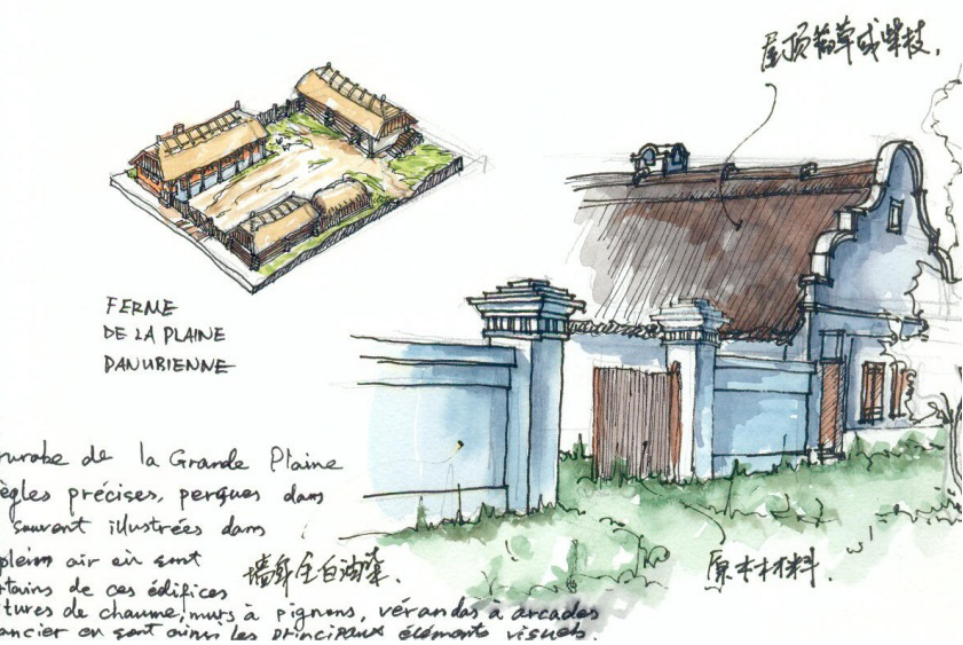 屋顶稻草或柴枝.
FERME
DE LA PLAINE
DANUBIENNE
rurake de la Grande Plaine
ègles précises, perques dans
souvent illustrées dans
plein air où sont
rtains de ces édifices
墙身全白油漆.
原木材料.
tures de chaume, murs à pignons, vérandas à arcades
ancier en sont ainsi les principaux éléments visuels.